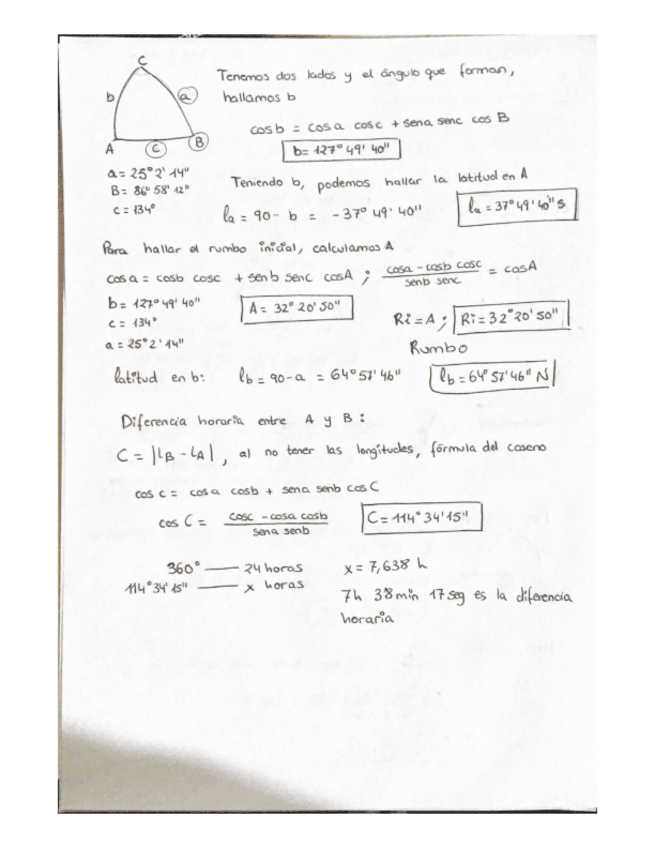 C
b
a
A
c
B
Tenemos dos lados y el ángulo que forman,
hallamos b
cos b = cos a cos c + sen a sen c cos B
b = 127° 49' 40"
a = 25° 2' 14"
B = 86° 58' 12"
c = 134°
Teniendo b, podemos hallar la latitud en A
la = 90 - b = - 37° 49' 40"
la = 37° 49' 40" S
Para hallar el rumbo inicial, calculamos A
cos a = cos b cos c + sen b sen c cos A ; (cos a - cos b cos c) / (sen b sen c) = cos A
b = 127° 49' 40"
c = 134°
a = 25° 2' 14"
A = 32° 20' 50"
Ri = A ; Ri = 32° 20' 50"
Rumbo
latitud en b: lb = 90 - a = 64° 57' 46"
lb = 64° 57' 46" N
Diferencia horaria entre A y B :
C = |LB - LA| , al no tener las longitudes, fórmula del coseno
cos c = cos a cos b + sen a sen b cos C
cos C = (cos c - cos a cos b) / (sen a sen b)
C = 114° 34' 15"
360° —— 24 horas
114° 34' 15" —— x horas
x = 7,638 h
7h 38min 17seg es la diferencia
horaria